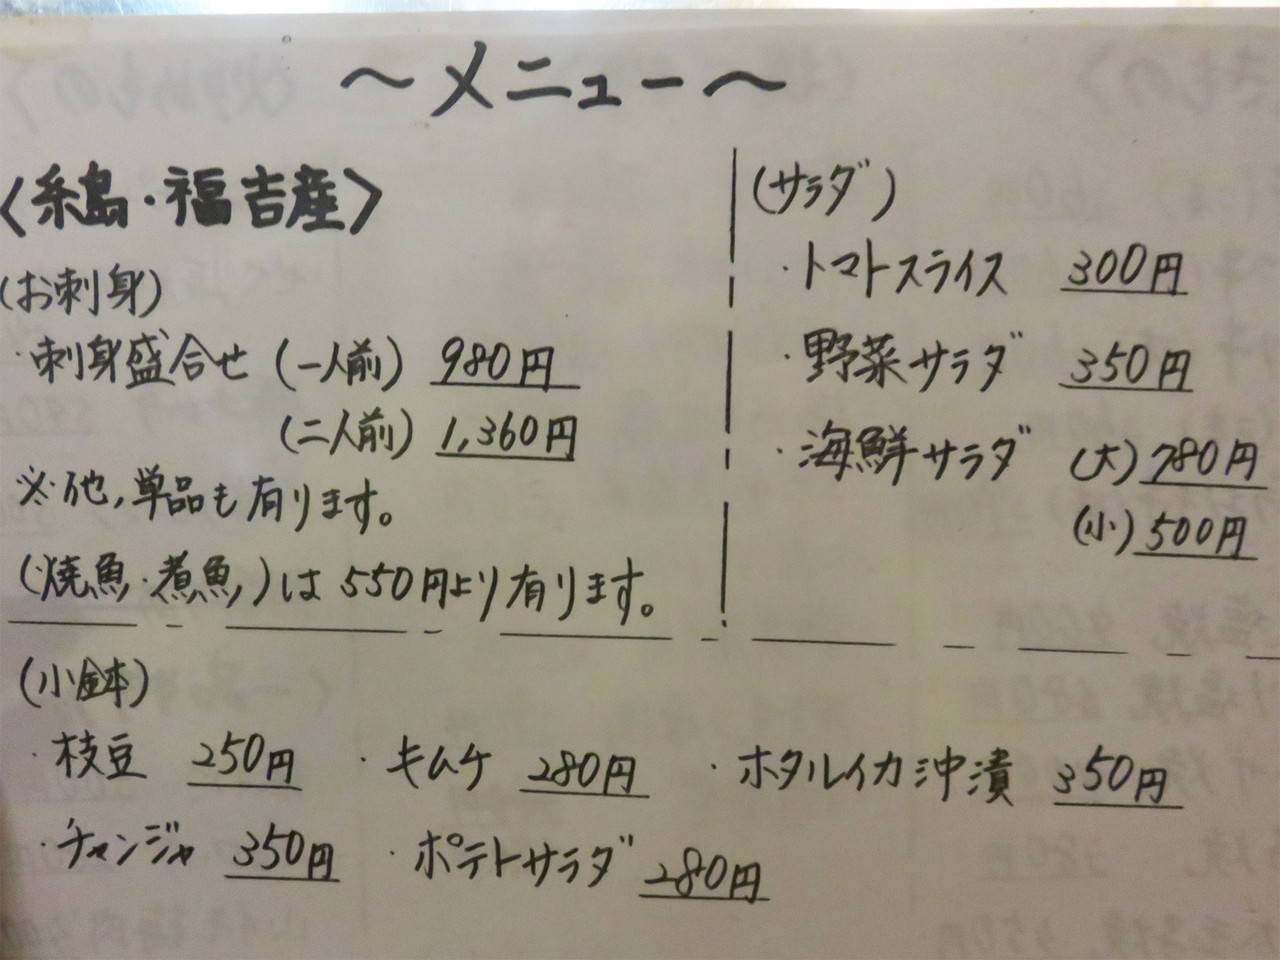 ～メニュー～
〈糸島・福吉産〉
(お刺身)
・刺身盛合せ (一人前) 980円
(二人前) 1,360円
※他,単品も有ります。
(焼魚・煮魚)は550円より有ります。
(サラダ)
・トマトスライス 300円
・野菜サラダ 350円
・海鮮サラダ (大)780円
(小)500円
(小鉢)
・枝豆 250円 ・キムチ 280円 ・ホタルイカ沖漬 350円
・チャンジャ 350円 ・ポテトサラダ 280円